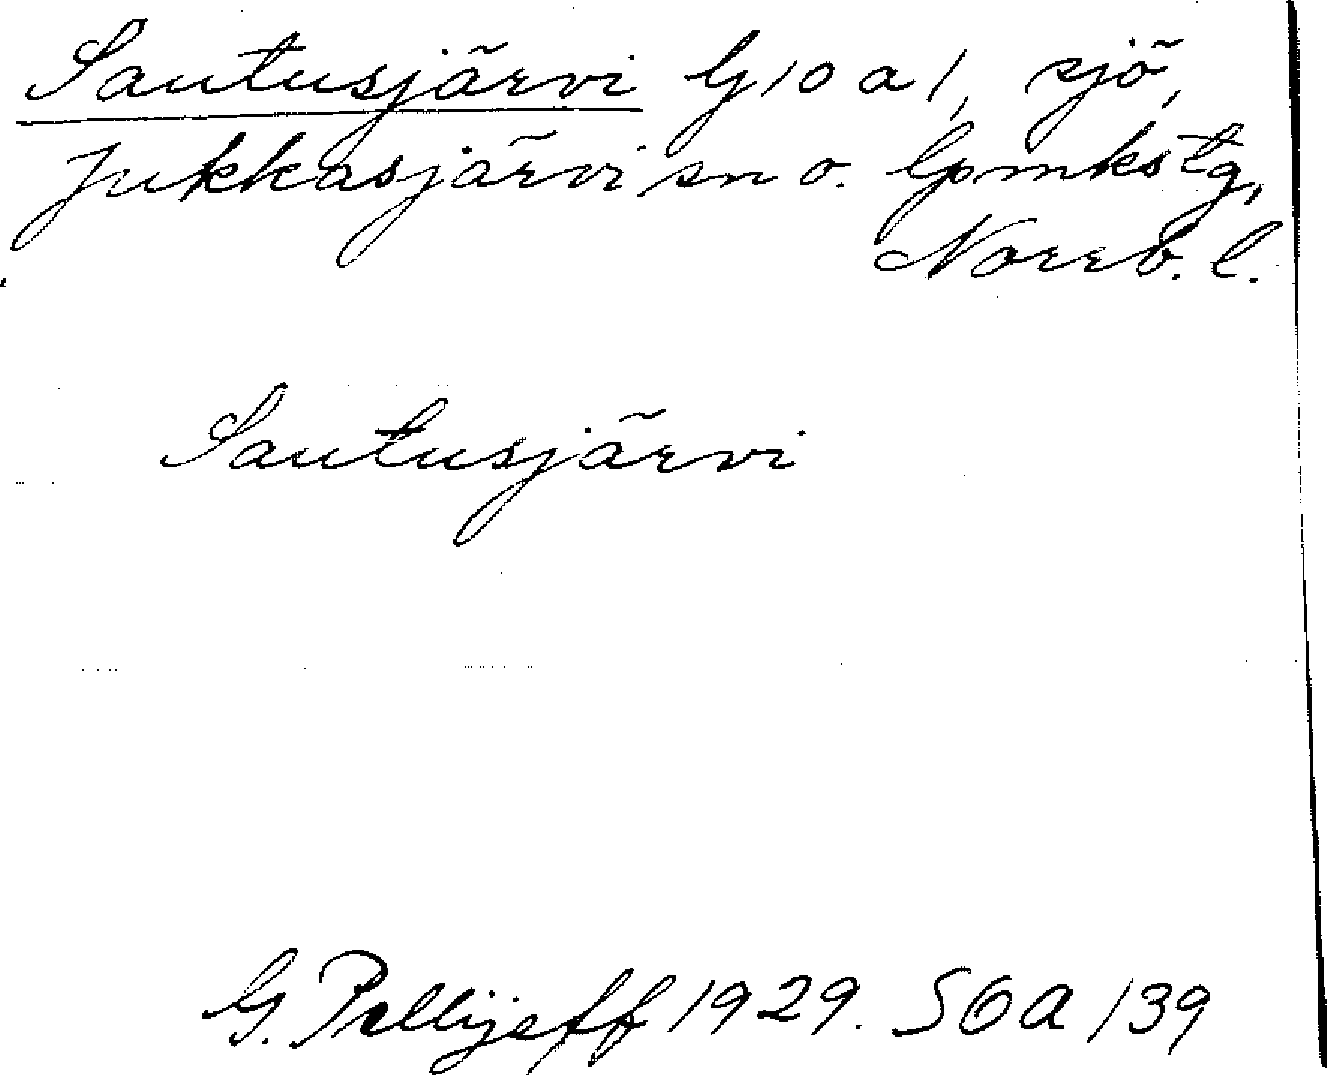 Sautusjärvi G 10 a 1, sjö,
Jukkasjärvi sn o. lpmkstg,
Norrb. l.
Sautusjärvi
G. Pellijeff 1929. SOA 139